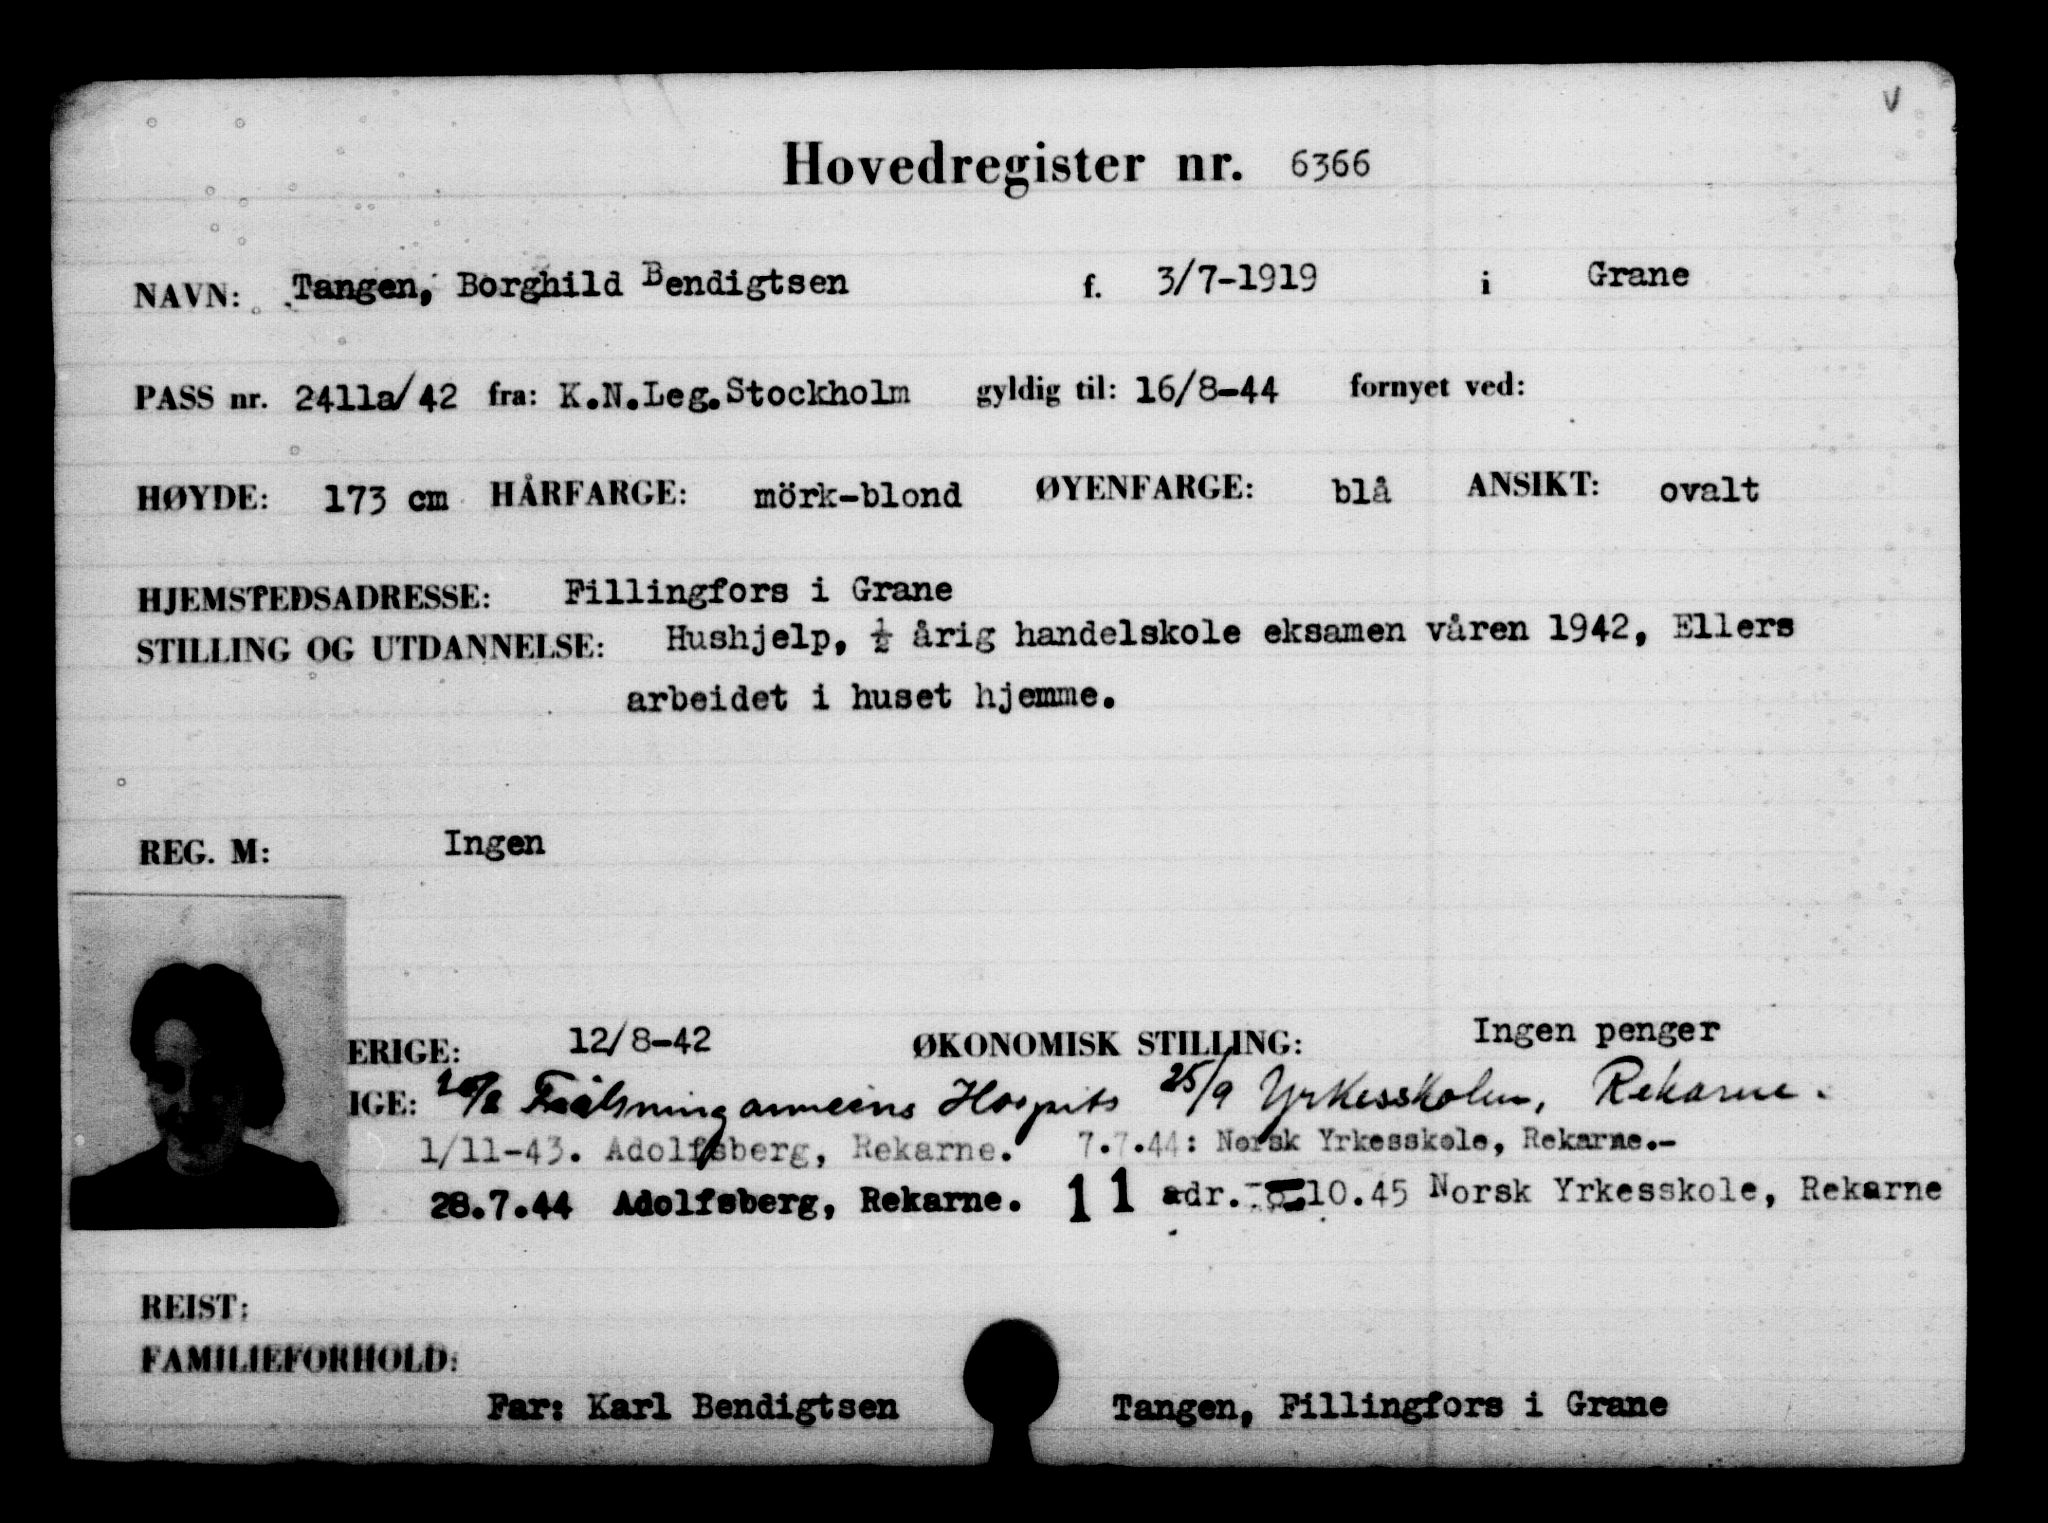 V
Hovedregister nr. 6366
NAVN: Tangen, Borghild Bendigtsen f. 3/7-1919 i Grane
PASS nr. 2411a/42 fra: K.N.Leg.Stockholm gyldig til: 16/8-44 fornyet ved:
HØYDE: 173 cm HÅRFARGE: mörk-blond ØYENFARGE: blå ANSIKT: ovalt
HJEMSTEDSADRESSE: Fillingfors i Grane
STILLING OG UTDANNELSE: Hushjelp, ½ årig handelskole eksamen våren 1942, Ellers
arbeidet i huset hjemme.
REG. M: Ingen
ERIGE: 12/8-42 ØKONOMISK STILLING: Ingen penger
IGE: Hospits 25/9 Yrkesskolen, Rekarne.
1/11-43. Adolfsberg, Rekarne. 7.7.44: Norsk Yrkesskole, Rekarne.-
28.7.44 Adolfsberg, Rekarne. 11 adr. 10.45 Norsk Yrkesskole, Rekarne
REIST:
FAMILIEFORHOLD:
Far: Karl Bendigtsen Tangen, Fillingfors i Grane